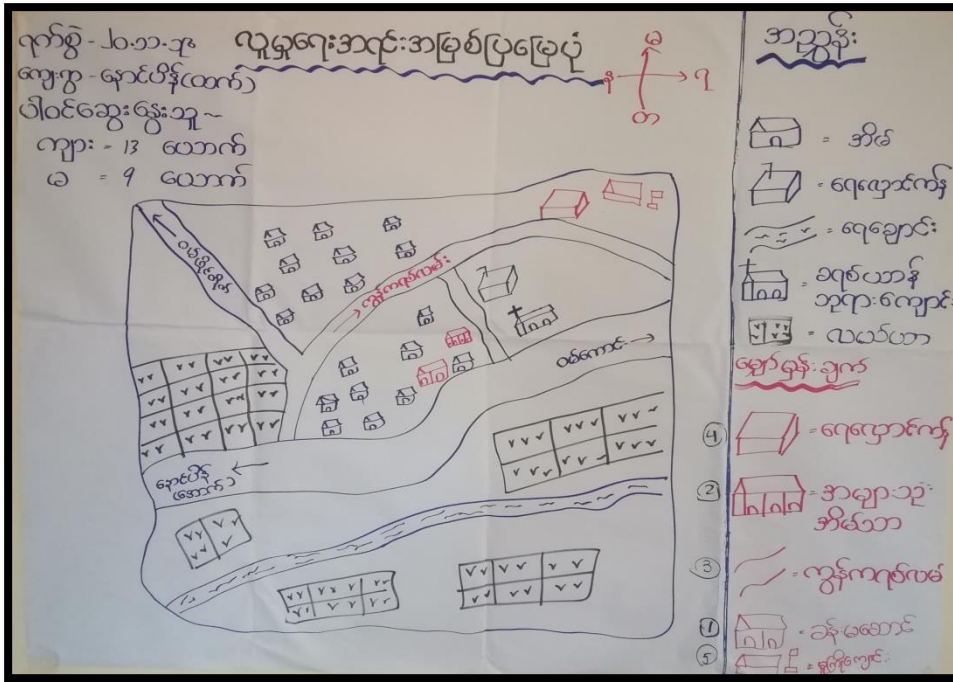 ရက်စွဲ - ၂၀.၁၁.၁၉
လူမှုရေးအရင်းအမြစ်ပြမြေပုံ
ကျေးရွာ - နောင်ပိန်(ထက်)
ပါဝင်ဆွေးနွေးသူ ~
ကျား - 13 ယောက်
မ = 9 ယောက်
မ
န
ရ
တ
ကွန်ကရစ်လမ်း
ဝမ်ကောင်း →
နောင်ပိန်
(အောက်)
အညွှန်း
= အိမ်
= ရေလှောင်ကန်
= ရေချောင်း
= ခရစ်ယာန်
ဘုရားကျောင်း
= လယ်ယာ
မျှော်မှန်းချက်
④ = ရေလှောင်ကန်
② = အများသုံး
အိမ်သာ
③ = ကွန်ကရစ်လမ်း
① = ခန်းမဆောင်
⑤ = မူကြိုကျောင်း